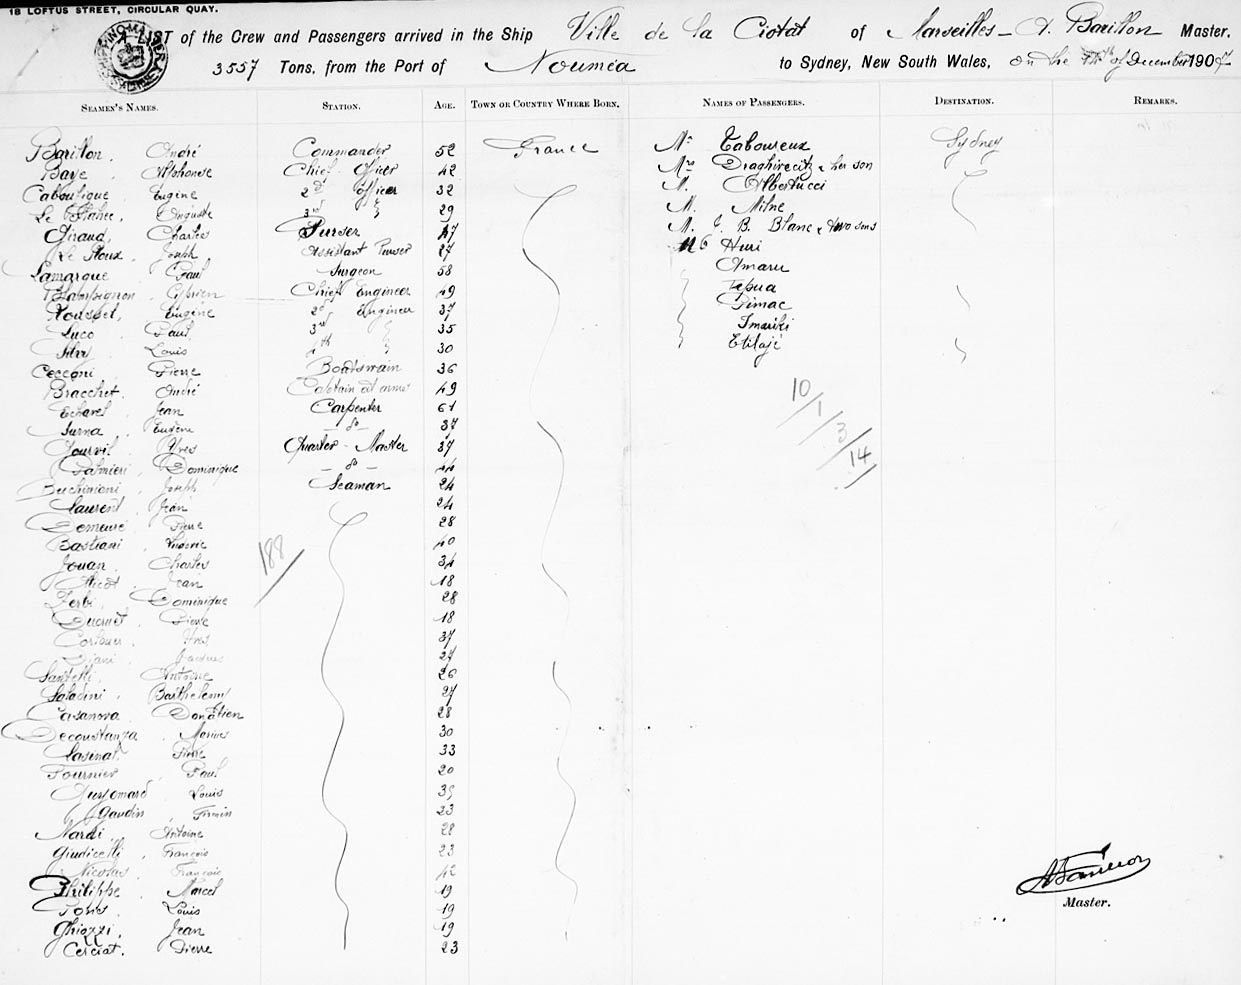 18 LOFTUS STREET, CIRCULAR QUAY.
A LIST of the Crew and Passengers arrived in the Ship Ville de La Ciotat of Marseilles - A. Barillon Master.
3557 Tons, from the Port of Nouméa to Sydney, New South Wales, on the of December 1907
SEAMEN'S NAMES. STATION. AGE. TOWN OR COUNTRY WHERE BORN. NAMES OF PASSENGERS. DESTINATION. REMARKS.
Barillon, André Commander 52 France Mr Taboureux Sydney
Baye, Alphonse Chief Officer 42 Mrs & her son
Caboufigue Eugène 2d Officer 32 M. Albertucci
Auguste 3rd 29 M. Milne
Giraud, Charles Purser 47 M. J. B. Blanc & two sons
Le Roux, Joseph Assistant Purser 27 6 Huri
Lamarque Paul Surgeon 58 Amaru
Champignon Cyprien Chief Engineer 49 Tepua
Rousset, Eugène 2d Engineer 37 Pimac
Luco Paul 3rd 35 Imariki
Louis 4th 30 Etilajé
Cecconi Pierre Boatswain 36
Bracchet, André Captain at arms 49
Jean Carpenter 61
Surna Eugène - do - 37
Gourvil, Yves Quarter-Master 37
Palmieri, Dominique - do - 44
Joseph Seaman 24
Laurent Jean 24
Demeure Pierre 28
Bastiani, Ludovic 40
Jouan, Charles 34
Jean 18
Zerbi, Dominique 28
Ducruet, Pierre 18
Yves 37
Jacques 27
Santelli, Antoine 26
Saladini, Barthelemy 27
Casanova Donatien 28
Decoustanza, 30
Pierre 33
Fournier Paul 20
Louis 35
Gaudin, Firmin 23
Nardi, Antoine 28
Giudicelli, François 23
Nicolas, François 42
Philippe, Marcel 19
Pons, Louis 19
Ghiozzi, Jean 19
Cerciat. Pierre 23
188
10/1/3/14
A Barillon
Master.